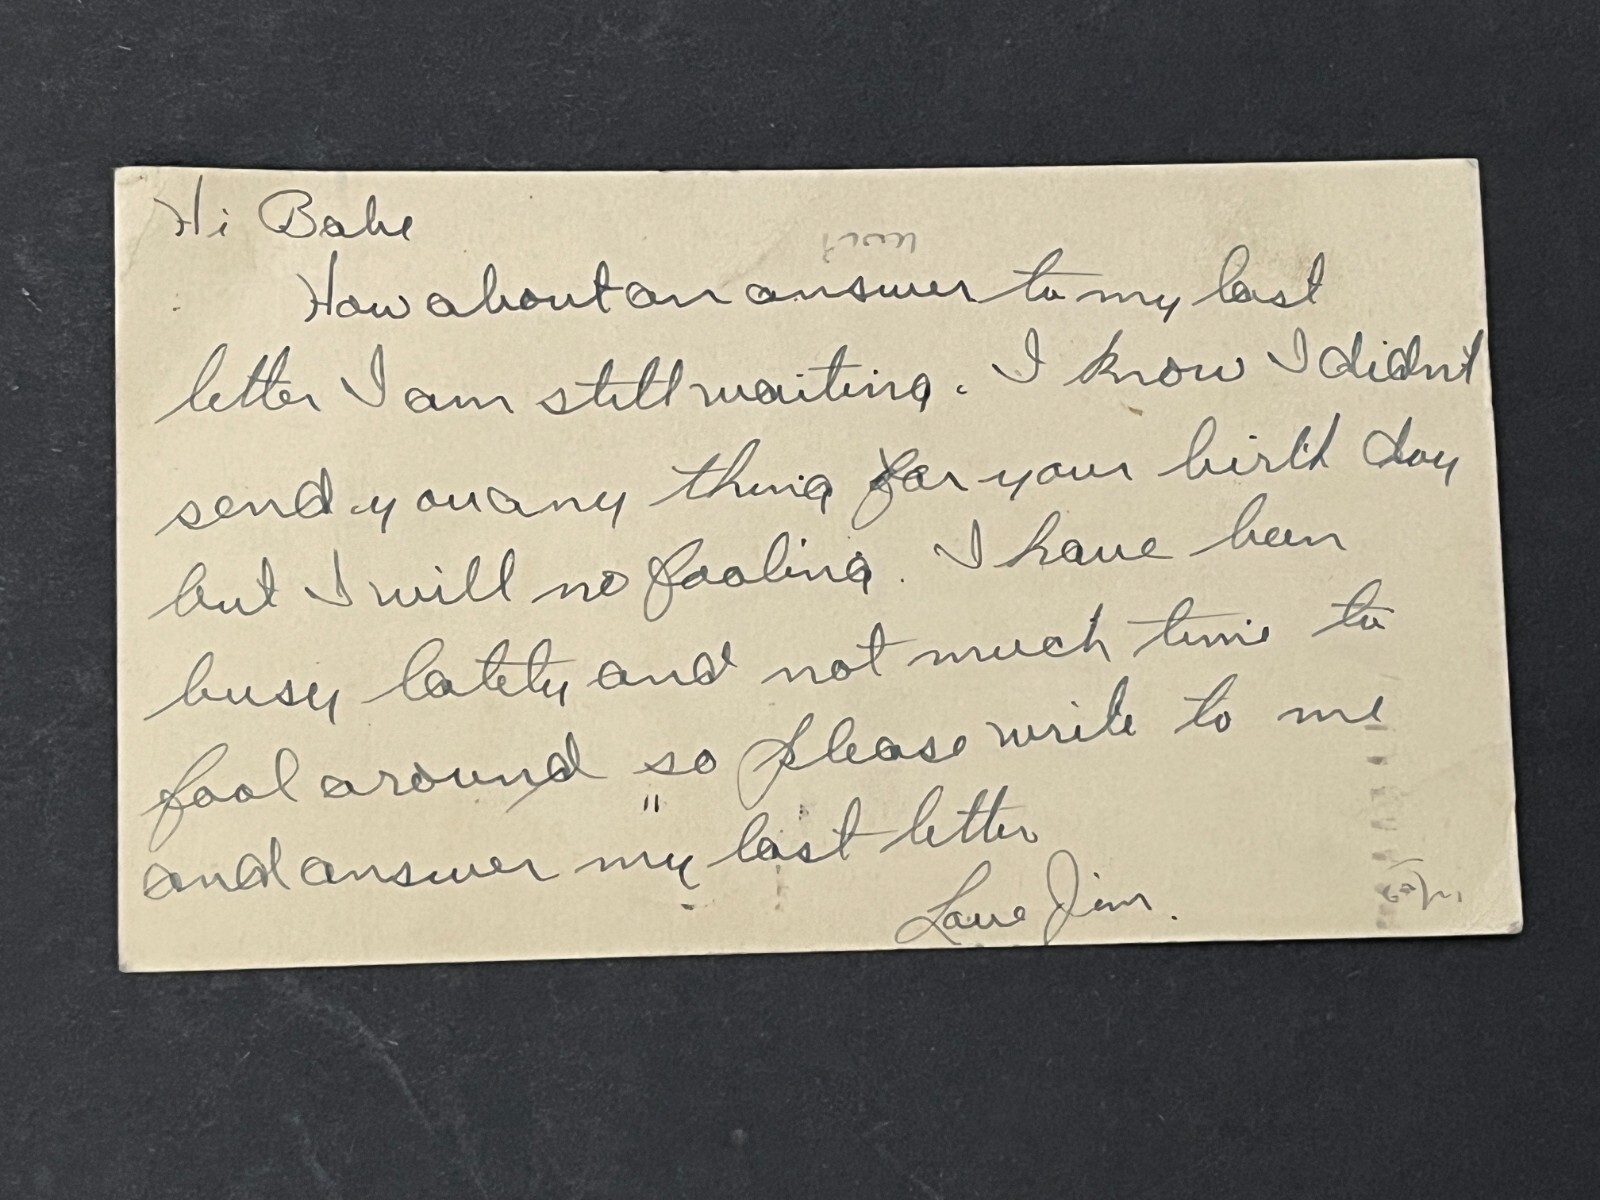 Hi Babe
How about an answer to my last
letter I am still waiting. I know I didnt
send you any thing for your birth day
but I will no fooling. I have been
busy lately and not much time to
fool around so please write to me
and answer my last letter
Love Jim.